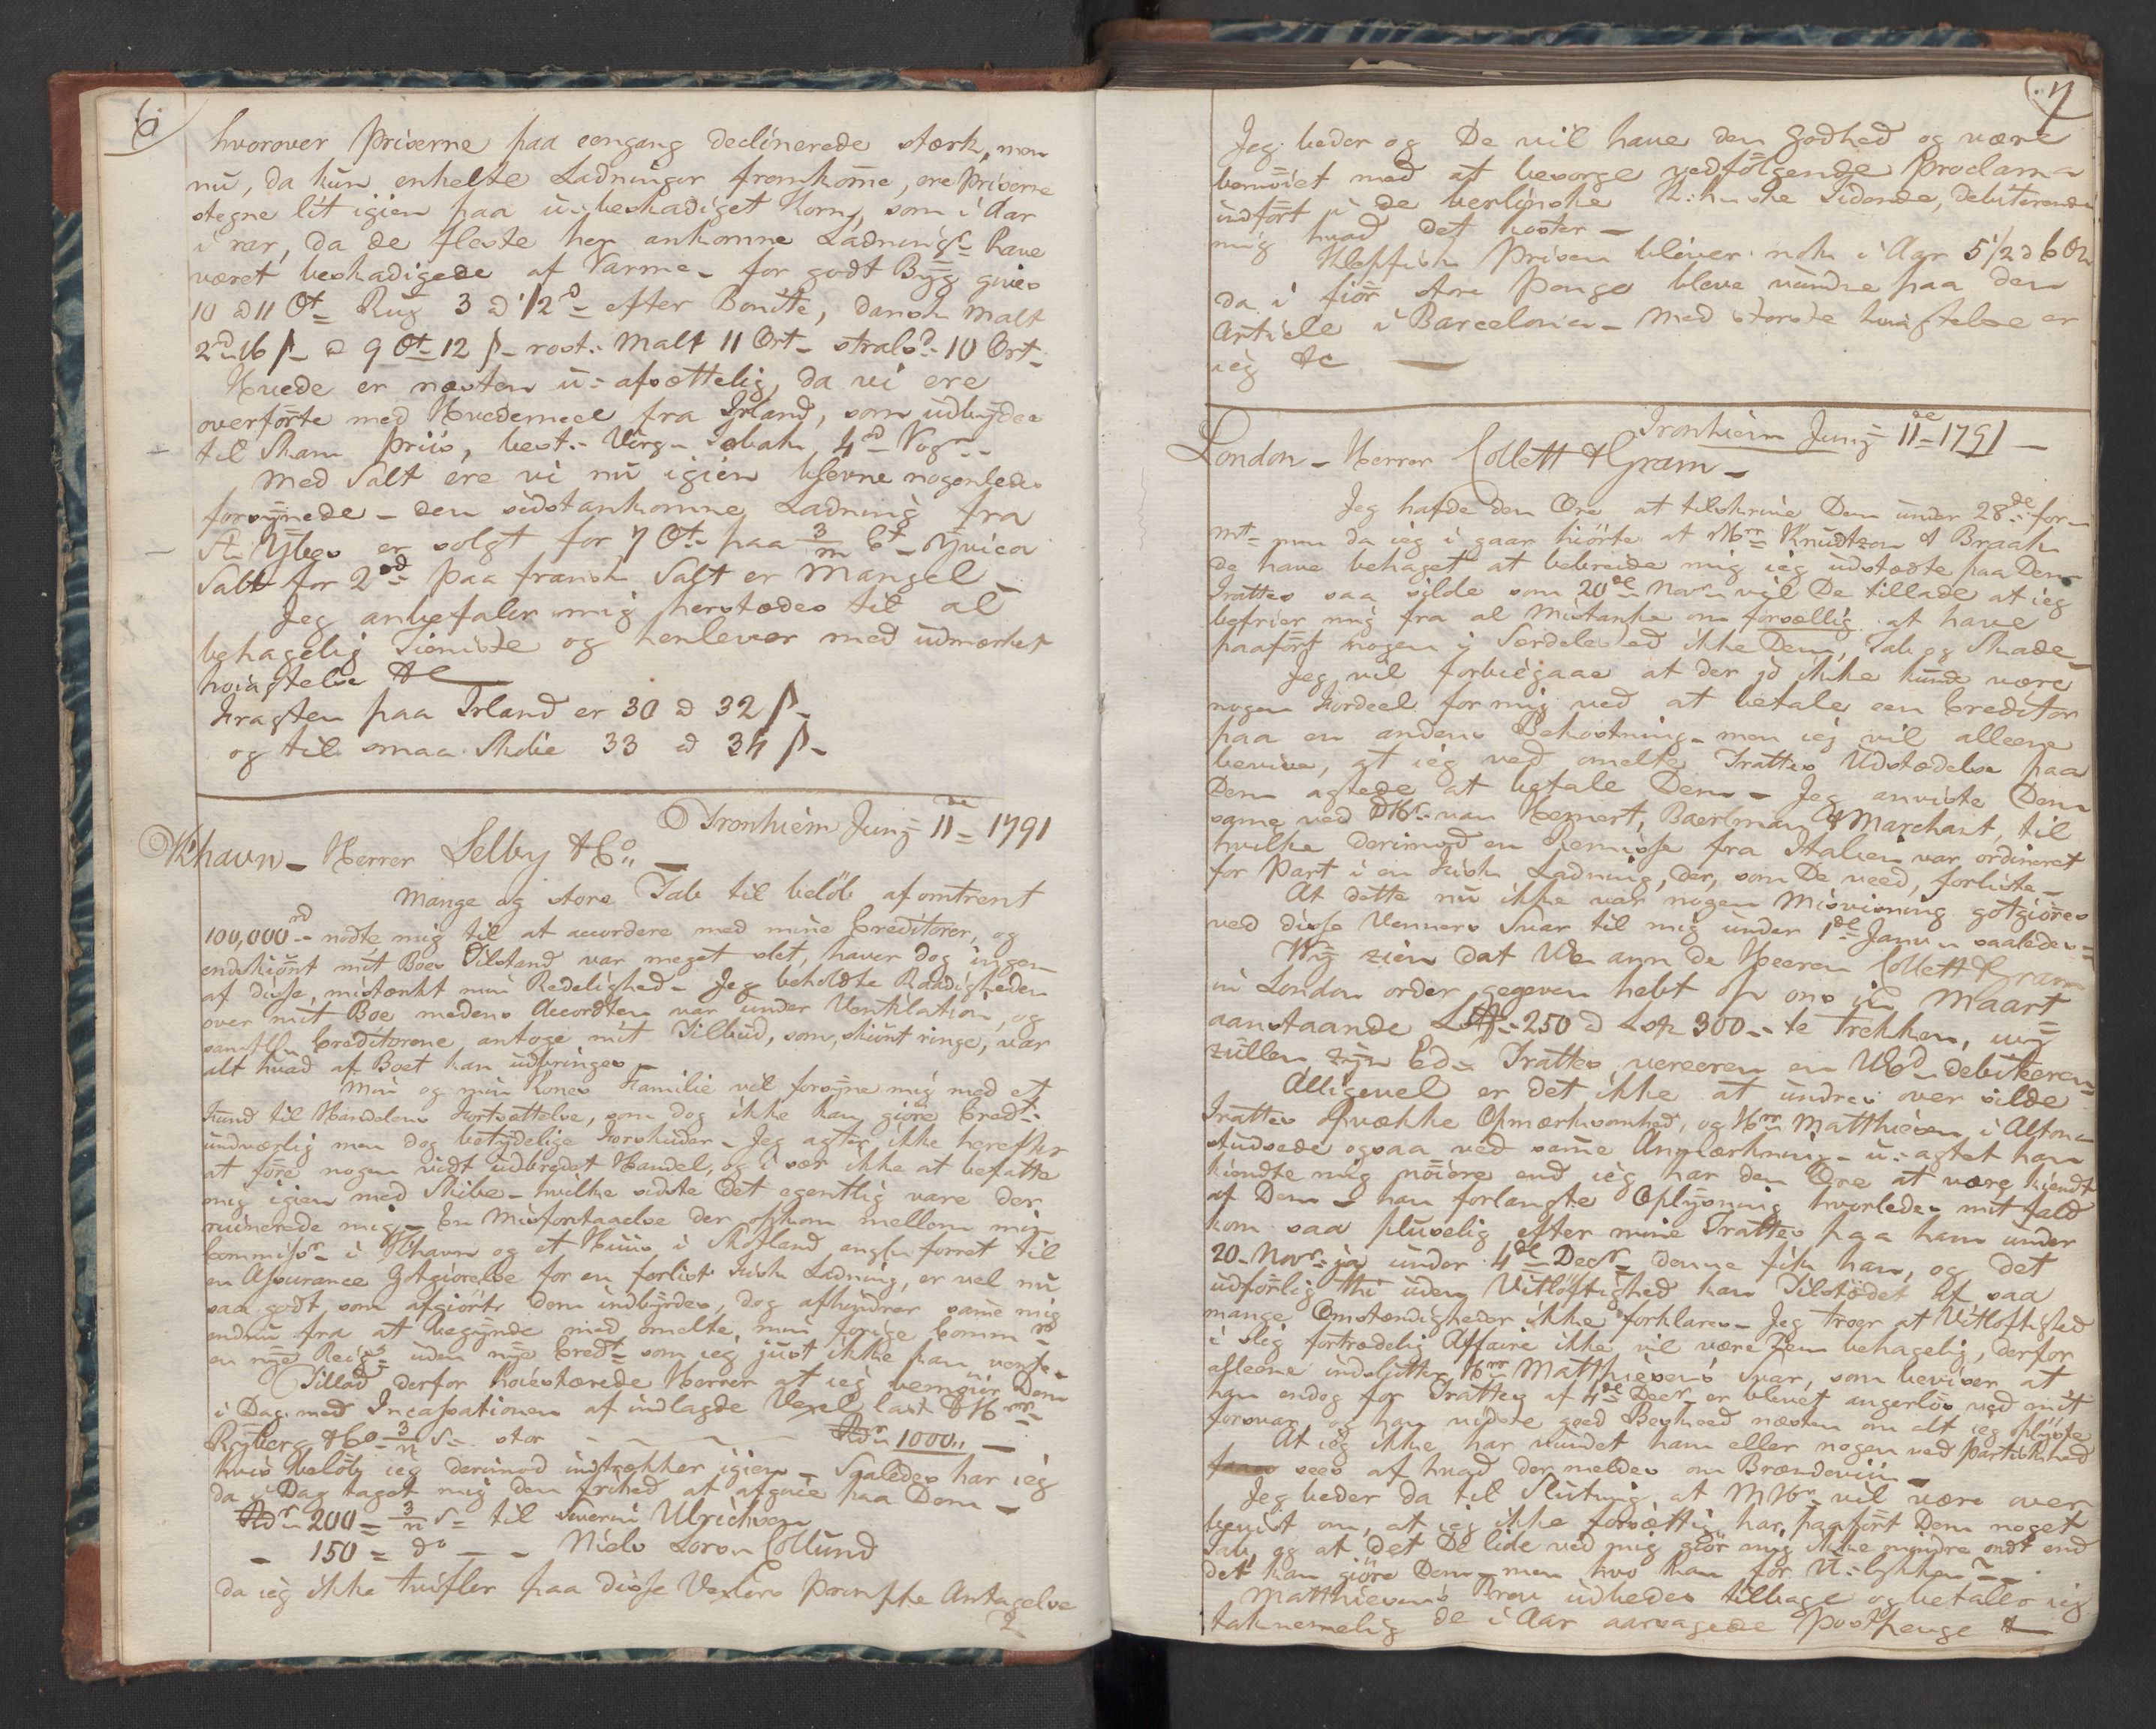 6
hvorover Priserne paa eengang declinerede stærk, men
nu, da kun enkelte Ladninger fremkom̄e, ere Priserne
stegne lit igien paa u-beskadiget Korn, som i Aar
i rar, da de fleste her ankomne Ladningr have
været beskadigede af Varme – for godt Byg gives
10 a 11 Ot Rug 3 a 1/2 d efter Bonite, dansk Malt
2 d 16 s a 9 Ot 12 s rost. Malt 11 Ort – strals. 10 Ort
Hvede er næsten u-afsættelig, da vi ere
overførte med Hvedemeel fra Irland, som udbydes
til Skam Priis, best. Virgn Tobak 4 d Vog
Med Salt ere vi nu igien blevne nogenledes
forsynede – den sidstankomne Ladning fra
St. Ybes er solgt for 7 Ot paa 3/m Ct Yvica
Salt for 2 d paa fransk Salt er Mangel –
Jeg anbefaler mig herstædes til al
behagelig Tieniste og henlever med udmærket
høiagtelse &c
Fragten paa Irland er 30 a 32 s
og til smaa Skibe 33 a 34 s
Tronhiem Junÿ 11de 1791
Khavn – Herrer Selby & Co
Mange og store Tab til beløb af omtrent
100,000 rd nødte mig til at accordere med mine Creditorer, og
endskiønt mit Boes Tilstand var meget slet, haver dog ingen
af disse, mistænkt min Redelighed – Jeg beholdte Raadigheden
over mit Boe medens Accordten var under Ventilation, og
samtl. Creditorene antoge mit Tilbud, som, skiønt ringe, var
alt hvad af Boet kan udbringes –
Min og min Kones Familie vil forsyne mig med et
Fund til Handelens Fortsættelse, som dog ikke kan giøre Credt
undværlig men dog betydelige Forskuder – Jeg agter ikke herefter
at føre nogen vidt udbredet Handel, og i sær ikke at befatte
mig igien med Skibe – hvilke sidste det egentlig vare der
ruinerede mig – En Misforstaaelse der opkom mellem min
Commissr i Khavn og et Huus i Skotland angl. forret til
en Assurance Gotgiørelse for en forlist Fisk Ladning, er vel nu
saa godt som afgiort dem indbyrdes, dog afhindrer sam̄e mig
endnu fra at begynde med omelte min forige Comm
en nye Reigs uden nye Credt som ieg just ikke kan vente.
Tillad derfor høistærede Herrer at ieg bemøier Dem
i Dag med Incassationen af indlagde Vexel last DHrr
Ryberg & Co 3/n s stor – – – – Rdr 1000 –
hvis Beløb ieg derimod indtrækker igien – Saaledes har ieg
da i Dag taget mig den frihed at afgive paa Dem –
Rdr 200 = 3/n s til Severin Ulrichsen
– 150 = do – – Niels Lorsn Collund
da ieg ikke tvifler paa disse Vexlers prompte Antagelse
7
Jeg beder og De vil have den Godhed og være
bemøiet med at besorge vedfølgende Proclama
indført i de berlingske Kbhnske Tidende, debiterende
mig hvad det koster –
Klepfisk Prisen bliver nok i Aar 5 1/2 a 6 Ot
da i fior store Penge bleve vundne paa den
Article i Barcelona – med største høiagtelse er
ieg &c
Tronhiem Junÿ 11de 1791 –
London – Herrer Collett & Gram –
Jeg hafde den Ære at tilskrive Dem under 28de for
mt men da ieg i gaar hiørte at Hrr Knudtzon & Braak
de have behaget at bebreide mig ieg udstædte paa Dem
Tratter saa silde som 20de Novr vil De tillade at ieg
befrier mig fra al Mistanke om forsætlig at have
paaført nogen i Særdeleshed ikke Dem, Tab og Skade –
Jeg vil forbiegaae at der jo ikke kunde være
nogen Fordeel for mig ved at betale een Creditor
paa en andens Bekostning – men ieg vil alleene
bevise, at ieg ved omelte Tratters Udstædelse paa
Dem agtede at betale Dem – Jeg anviste Dem
sam̄e ved DHr van Hemert, Baerlman & Marchant, til
hvilke derimod en Remisse fra Italien var ordineret
for Part i en Fisk Ladning, der, som De veed, forliste –
At dette nu ikke var nogen Misvisning gotgiøres
ved disse Venners Svar til mig under 1de Janv saaledes
Wÿ zien dat UE ann de Heeren Collett & Gram
in London order gegeven hebt op ons in Maart
aanstaande L 250 a L 300 te trekken, wÿ
zullen zÿn Ed Trattes vereeren en UEd debiteren
Alligevel er det ikke at undres over silde
Tratter opvække Opmærksomhed, og Hrr Matthiesen i Altona
studsede ogsaa ved sam̄e Anmærkning – u-agtet han
kiendte mig nøiere end ieg har den Ære at være kiendt
af Dem – han forlangte Oplysning hvorledes mit fald
kom saa pludselig efter mine Tratter paa ham under
20 Novr ja under 4de Decr denne fik han, og det
udførlig thi uden Vitløftighed kan Tilstødet af saa
mange Omstændigheder ikke forklares – Jeg troer at Vitløftighed
i slig fortrædelig Affaire ikke vil være Dem behagelig, derfor
alleene indslutter Hrr Matthiesens Svar, som beviser at
han endog for Tratten af 4de Decr er blevet angerløs ved mit
forsvar, og han vidste god Beskeed næsten om alt ieg oplyste
At ieg ikke har vundet ham eller nogen ved Partiskhed
sees af hvad der meldes om Brændeviin –
Jeg beder da til Slutning at MHr vil være over
bevist om, at ieg ikke forsættlig har paaført Dem noget
Tab, og at det De lide ved mig giør mig ikke mindre ondt end
det kan giøre Dem – men hvo kan for U-lykken –
Matthiesens Brev udbedes tilbage og betaler ieg
taknemelig de i Aar aarsagede Postpenge &